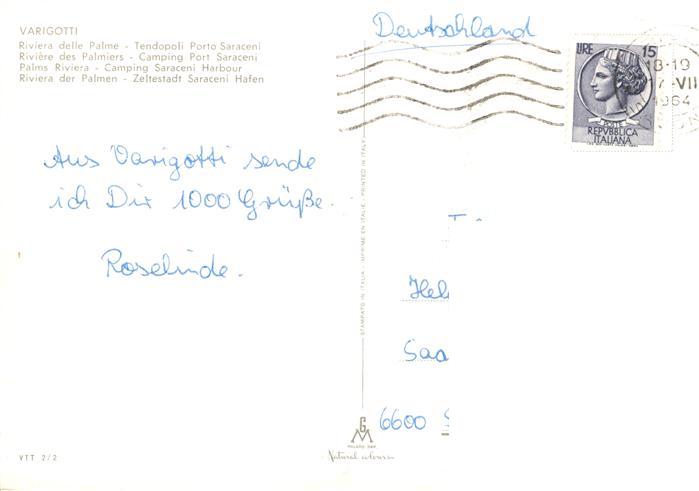 VARIGOTTI
Riviera delle Palme - Tendopoli Porto Saraceni
Rivière des Palmiers - Camping Port Saraceni
Palms Riviera - Camping Saraceni Harbour
Riviera der Palmen - Zeltestadt Saraceni Hafen
Aus Varigotti sende
ich Dir 1000 Grüße.
Roselinde.
VTT 2/2
STAMPATO IN ITALIA - IMPRIMÉ EN ITALIE - PRINTED IN ITALY
Natural colours
Deutschland
LIRE 15
POSTE
REPVBBLICA
ITALIANA
18-19
17-VII
1964
Hel
Saa
6600 S